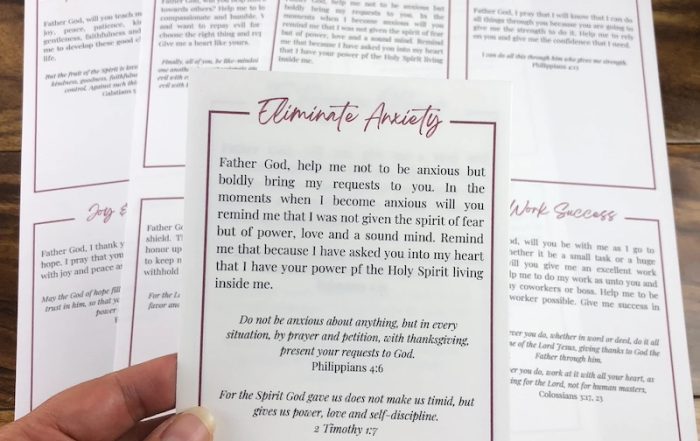 Father God, will you teach
joy, peace, patience,
gentleness, faithfulness and
me to develop these good
life.
But the fruit of the Spirit is love
kindness, goodness, faithfulness
control. Against such
Galatians
towards others? Help me to
compassionate and humble.
and want to repay evil for
choose the right thing and
Give me a heart like yours.
Finally, all of you, be like-minded
one another
evil with
evil with
help me not to be anxious but
boldly bring my requests to you. In the
moments when I become anxious will you
remind me that I was not given the spirit of fear
but of power, love and a sound mind. Remind
me that because I have asked you into my heart
that I have your power pf the Holy Spirit living
inside me.
Father God, I pray that I will know that I can do
all things through you because you are going to
give me the strength to do it. Help me to rely
on you and give me the confidence that I need.
I can do all this through him who gives me strength.
Philippians 4:13
Eliminate Anxiety
Father God, help me not to be anxious but
boldly bring my requests to you. In the
moments when I become anxious will you
remind me that I was not given the spirit of fear
but of power, love and a sound mind. Remind
me that because I have asked you into my heart
that I have your power pf the Holy Spirit living
inside me.
Do not be anxious about anything, but in every
situation, by prayer and petition, with thanksgiving,
present your requests to God.
Philippians 4:6
For the Spirit God gave us does not make us timid, but
gives us power, love and self-discipline.
2 Timothy 1:7
Joy &
Father God, I thank
hope. I pray that you
with joy and peace as
May the God of hope fill
trust in him, so that
power
Father
shield.
honor
to keep
withhold
For the
favor and
Work Success
will you be with me as I go to
whether it be a small task or a huge
will you give me an excellent work
me to do my work as unto you and
my coworkers or boss. Help me to be
worker possible. Give me success in
you do, whether in word or deed, do it all
of the Lord Jesus, giving thanks to God the
Father through him.
you do, work at it with all your heart, as
for the Lord, not for human masters.
Colossians 3:17, 23